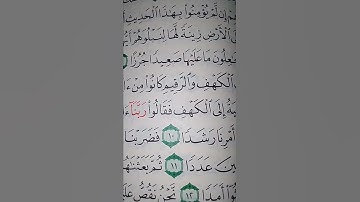 إِن لَّمْ يُؤْمِنُوا بِهَٰذَا الْحَدِيثِ
الْأَرْضِ زِينَةً لَّهَا لِنَبْلُوَهُمْ
عِلُونَ مَا عَلَيْهَا صَعِيدًا جُرُزًا
الْكَهْفِ وَالرَّقِيمِ كَانُوا مِنْ
إِلَى الْكَهْفِ فَقَالُوا رَبَّنَا
أَمْرِنَا رَشَدًا ١٠ فَضَرَبْنَا
عَدَدًا ١١ ثُمَّ بَعَثْنَاهُمْ
أَمَدًا ١٢ نَحْنُ نَقُصُّ